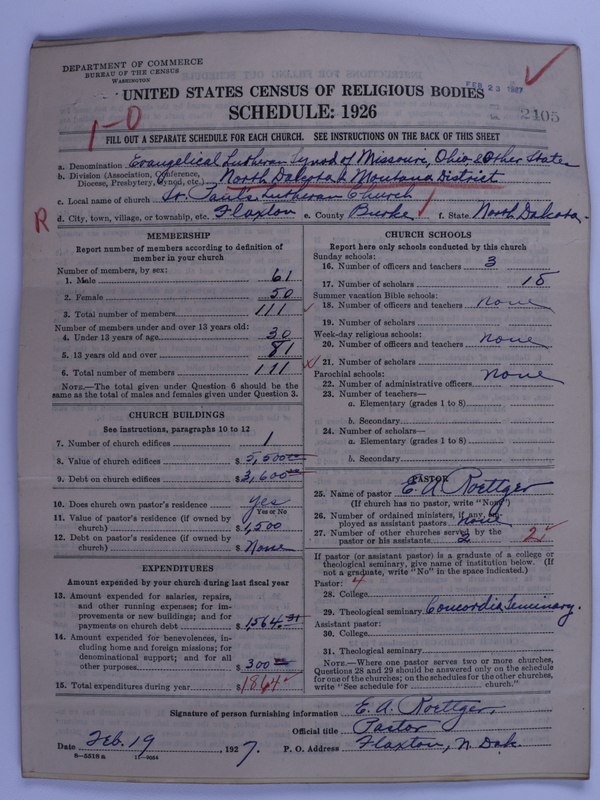 DEPARTMENT OF COMMERCE
BUREAU OF THE CENSUS
WASHINGTON
FEB 23 1927
UNITED STATES CENSUS OF RELIGIOUS BODIES
SCHEDULE: 1926
2105
1-0
FILL OUT A SEPARATE SCHEDULE FOR EACH CHURCH. SEE INSTRUCTIONS ON THE BACK OF THIS SHEET
a. Denomination Evangelical Lutheran Synod of Missouri, Ohio, & Other States
b. Division (Association, Conference, Diocese, Presbytery, Synod, etc.) North Dakota & Montana District
c. Local name of church St. Paul's Lutheran Church
R
d. City, town, village, or township, etc. Flaxton e. County Burke f. State North Dakota
MEMBERSHIP
Report number of members according to definition of
member in your church
Number of members, by sex:
1. Male 61
2. Female 50
3. Total number of members 111
Number of members under and over 13 years old:
4. Under 13 years of age 30
5. 13 years old and over 81
6. Total number of members 111
NOTE.—The total given under Question 6 should be the
same as the total of males and females given under Question 3.
CHURCH BUILDINGS
See instructions, paragraphs 10 to 12
7. Number of church edifices 1
8. Value of church edifices $ 5,500
9. Debt on church edifices $ 3,600
10. Does church own pastor's residence Yes
Yes or No
11. Value of pastor's residence (if owned by
church) $ 1,500
12. Debt on pastor's residence (if owned by
church) $ None
EXPENDITURES
Amount expended by your church during last fiscal year
13. Amount expended for salaries, repairs,
and other running expenses; for im-
provements or new buildings; and for
payments on church debt $ 1564.31
14. Amount expended for benevolences, in-
cluding home and foreign missions; for
denominational support; and for all
other purposes $ 300
15. Total expenditures during year $ 1864
CHURCH SCHOOLS
Report here only schools conducted by this church
Sunday schools:
16. Number of officers and teachers 3
17. Number of scholars 15
Summer vacation Bible schools:
18. Number of officers and teachers none
19. Number of scholars
Week-day religious schools:
20. Number of officers and teachers none
21. Number of scholars
Parochial schools:
22. Number of administrative officers none
23. Number of teachers—
a. Elementary (grades 1 to 8)
b. Secondary
24. Number of scholars—
a. Elementary (grades 1 to 8)
b. Secondary
PASTOR
25. Name of pastor E. A. Roettger
(If church has no pastor, write "None")
26. Number of ordained ministers, if any, em-
ployed as assistant pastors none
27. Number of other churches served by the
pastor or his assistants 2 2
If pastor (or assistant pastor) is a graduate of a college or
theological seminary, give name of institution below. (If
not a graduate, write "No" in the space indicated.)
Pastor: 4
28. College
29. Theological seminary Concordia Seminary.
Assistant pastor:
30. College
31. Theological seminary
NOTE.—Where one pastor serves two or more churches,
Questions 28 and 29 should be answered only on the schedule
for one of the churches; on the schedules for the other churches,
write "See schedule for church."
Signature of person furnishing information E. A. Roettger,
Official title Pastor
Date Feb. 19, 1927. P. O. Address Flaxton, N. Dak.
8—5518a 11—9034